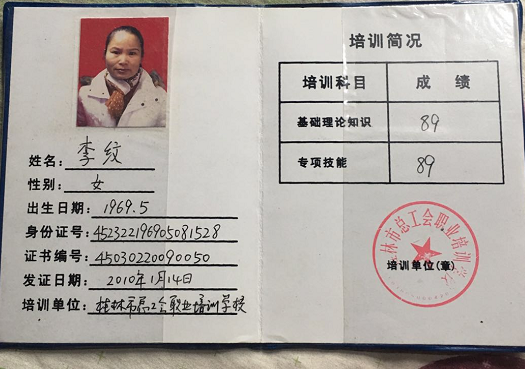 姓名：李纹
性别：女
出生日期：1969.5
身份证号：452322196905081528
证书编号：45030220090050
发证日期：2010年1月14日
培训单位：桂林市总工会职业培训学校
培训简况
培训科目 成绩
基础理论知识 89
专项技能 89
桂林市总工会职业培训学校
培训单位(章)